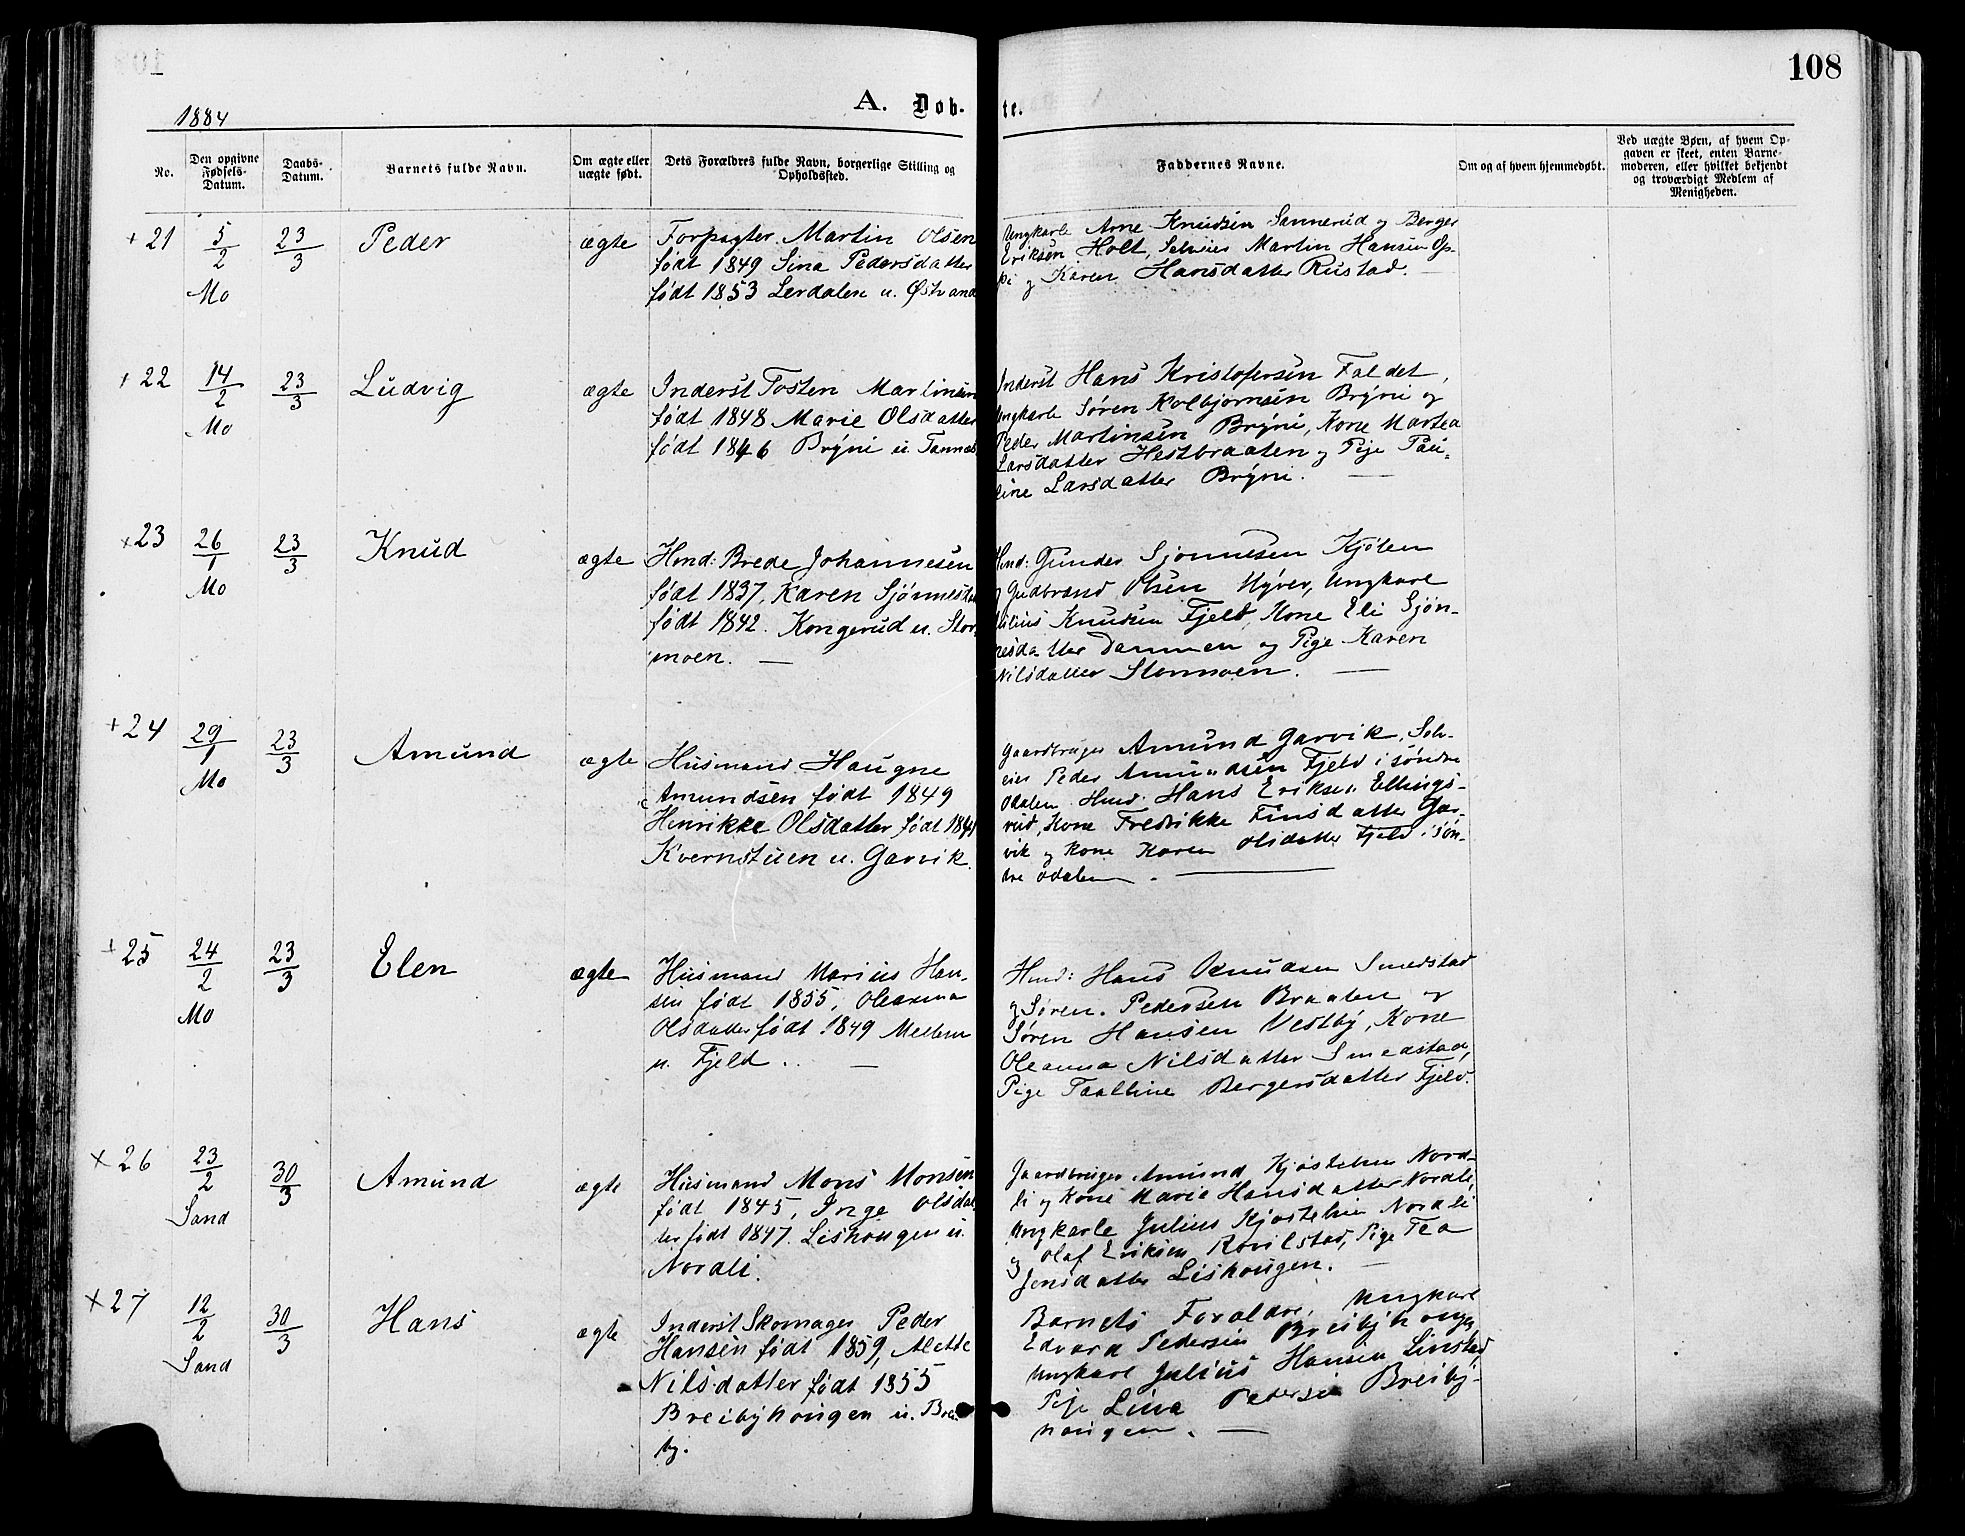 108
1884
A. Døb-
te.
No.
Den opgivne Fødsels-Datum.
Daabs-Datum.
Barnets fulde Navn.
Om ægte eller uægte født.
Dets Forældres fulde Navn, borgerlige Stilling og Opholdssted.
Faddernes Navne.
Om og af hvem hjemmedøbt.
Ved uægte Børn, af hvem Op-
gaven er skeet, enten Barne-
moderen, eller hvilket bekjendt
og troværdigt Medlem af
Menigheden.
+ 21 5/2 Mo 23/3 Peder ægte
Forpagter Martin Olsen
født 1849 Sina Pedersdatter
født 1853 Lerdalen u.
Ungkarle Arne Knudsen Sannerud og Berger
Eriksen Holt, Selveier Martin Hansen Op-
pi og Karen Hansdatter Rustad. —
+ 22 14/2 Mo 23/3 Ludvig ægte
Inderst Tosten Martinsen
født 1848 Marie Olsdatter
født 1846 Brÿni u.
Inderst Hans Kristofersen Faldet,
Ungkarle Søren Kolbjornsen Brÿni og
Peder Martinsen Brÿni, Kone Martea
Larsdatter Hestbraaten og Pige Pau-
line Larsdatter Brÿni. —
+ 23 26/1 Mo 23/3 Knud ægte
Hmd: Brede Johannesen
født 1837, Karen
født 1842. Kongerud u. Stor-
moen. —
Hmd: Gunder Sjønnesen Kjölen
og Gudbrand Olsen Myrer, Ungkarl
Julius Knudsen Fjeld, Kone Eli Sjön-
nesdatter Dammen og Pige Karen
Nilsdatter Stormoen. —
+ 24 29/1 Mo 23/3 Amund ægte
Husmand Haugne
Amundsen født 1849
Henrikke Olsdatter født
Kvernstuen u. Garvik.
Gaardbruger Amund Garvik, Selv-
eier Peder Amundsen Fjeld i søndre
Odalen. Hmd. Hans Eriksen Ellings-
rud, Kone Fredrikke Finsdatter Gar-
vik og Kone Karen Olsdatter Fjeld i Søn-
dre Odalen. —
+ 25 24/2 Mo 23/3 Elen ægte
Husmand Marius Han-
sen født 1855, Oleanna
Olsdatter født 1849 Mellem
u. Fjeld. . —
Hmd: Hans Knudsen Smedstad
og Søren Pedersen Braaten og
Søren Hansen Vestby, Kone
Oleanna Nilsdatter Smedstad,
Pige Bergersdatter Fjeld.
x 26 23/2 Sand 30/3 Amund ægte
Husmand Mons Monsen
født 1845, Inge Olsdat-
ter født 1847. Lishougen u.
Nordli.
Gaardbruger Amund Kjøstelsen Nord-
li og Kone Marie Hansdatter Nordli,
Ungkarle Julius Kjøstelsen Nordli
og Olaf Eriksen Pige Tea
Jensdatter Lishougen. —
x 27 12/2 Sand 30/3 Hans ægte
Inderst Skomager Peder
Hansen født 1859, Alette
Nilsdatter født 1855
Breibÿhougen u. Brei-
by.
Barnets Foraldre, Ungkarl
Edvard Pedersen Breibÿhougen,
Ungkarl Julius Hansen Linstad,
Pige Lina Pedersen Breibÿ-
hougen. —